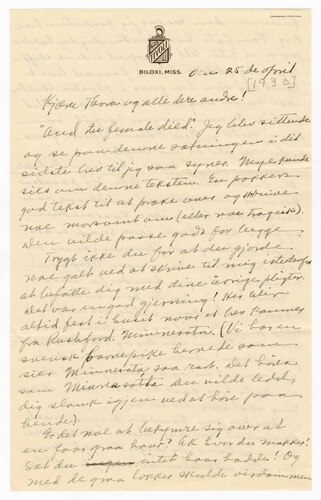 BILOXI, MISS.
den 25 de april
[1930]
Kjære Thora og alle dere andre!
"And the female died." Jeg blev sittende
og se paa denne sætningen i dit
sidste brev til jeg saa syner. Mye kunde
sies om denne teksten. En pokkers
god tekst til at præke over og skrive
noe morsomt om (eller noe tragisk).
Den vilde passe godt for begge.
Trygt ikke du for at du gjorde
noe galt ved at skrive til mig istedenfor
at befatte dig med dine "øvrige pligter".
Det var en god gjerning! Her blir
altid fest i huset naar et brev kommer
fra Rushford, Minnesota. (Vi har en
svensk barnepike hernede som
sier Minnesota saa rart. Det høres
som Minnasåtta. Du vilde ledd
dig skank igjen ved at høre paa
hende).
Er det noe at bekymre sig over at
en faar graa haar? Ek hvor du makker!
Sæt du intet haar hadde! Og
med de graa lokker skulde visdommen